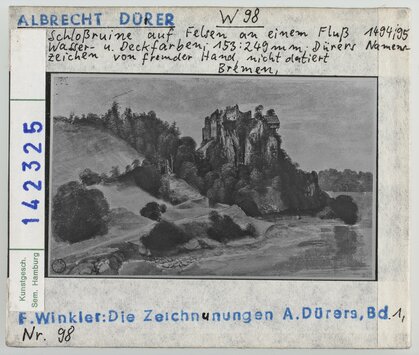 ALBRECHT DÜRER W 98
Schloßruine auf Felsen an einem Fluß 1494/95
Wasser- u. Deckfarben, 153:249mm, Dürers Namens-
zeichen von fremder Hand, nicht datiert
Bremen,
142325
Kunstgesch.
Sem. Hamburg
F. Winkler: Die Zeichnunungen A. Dürers, Bd. 1,
Nr. 98